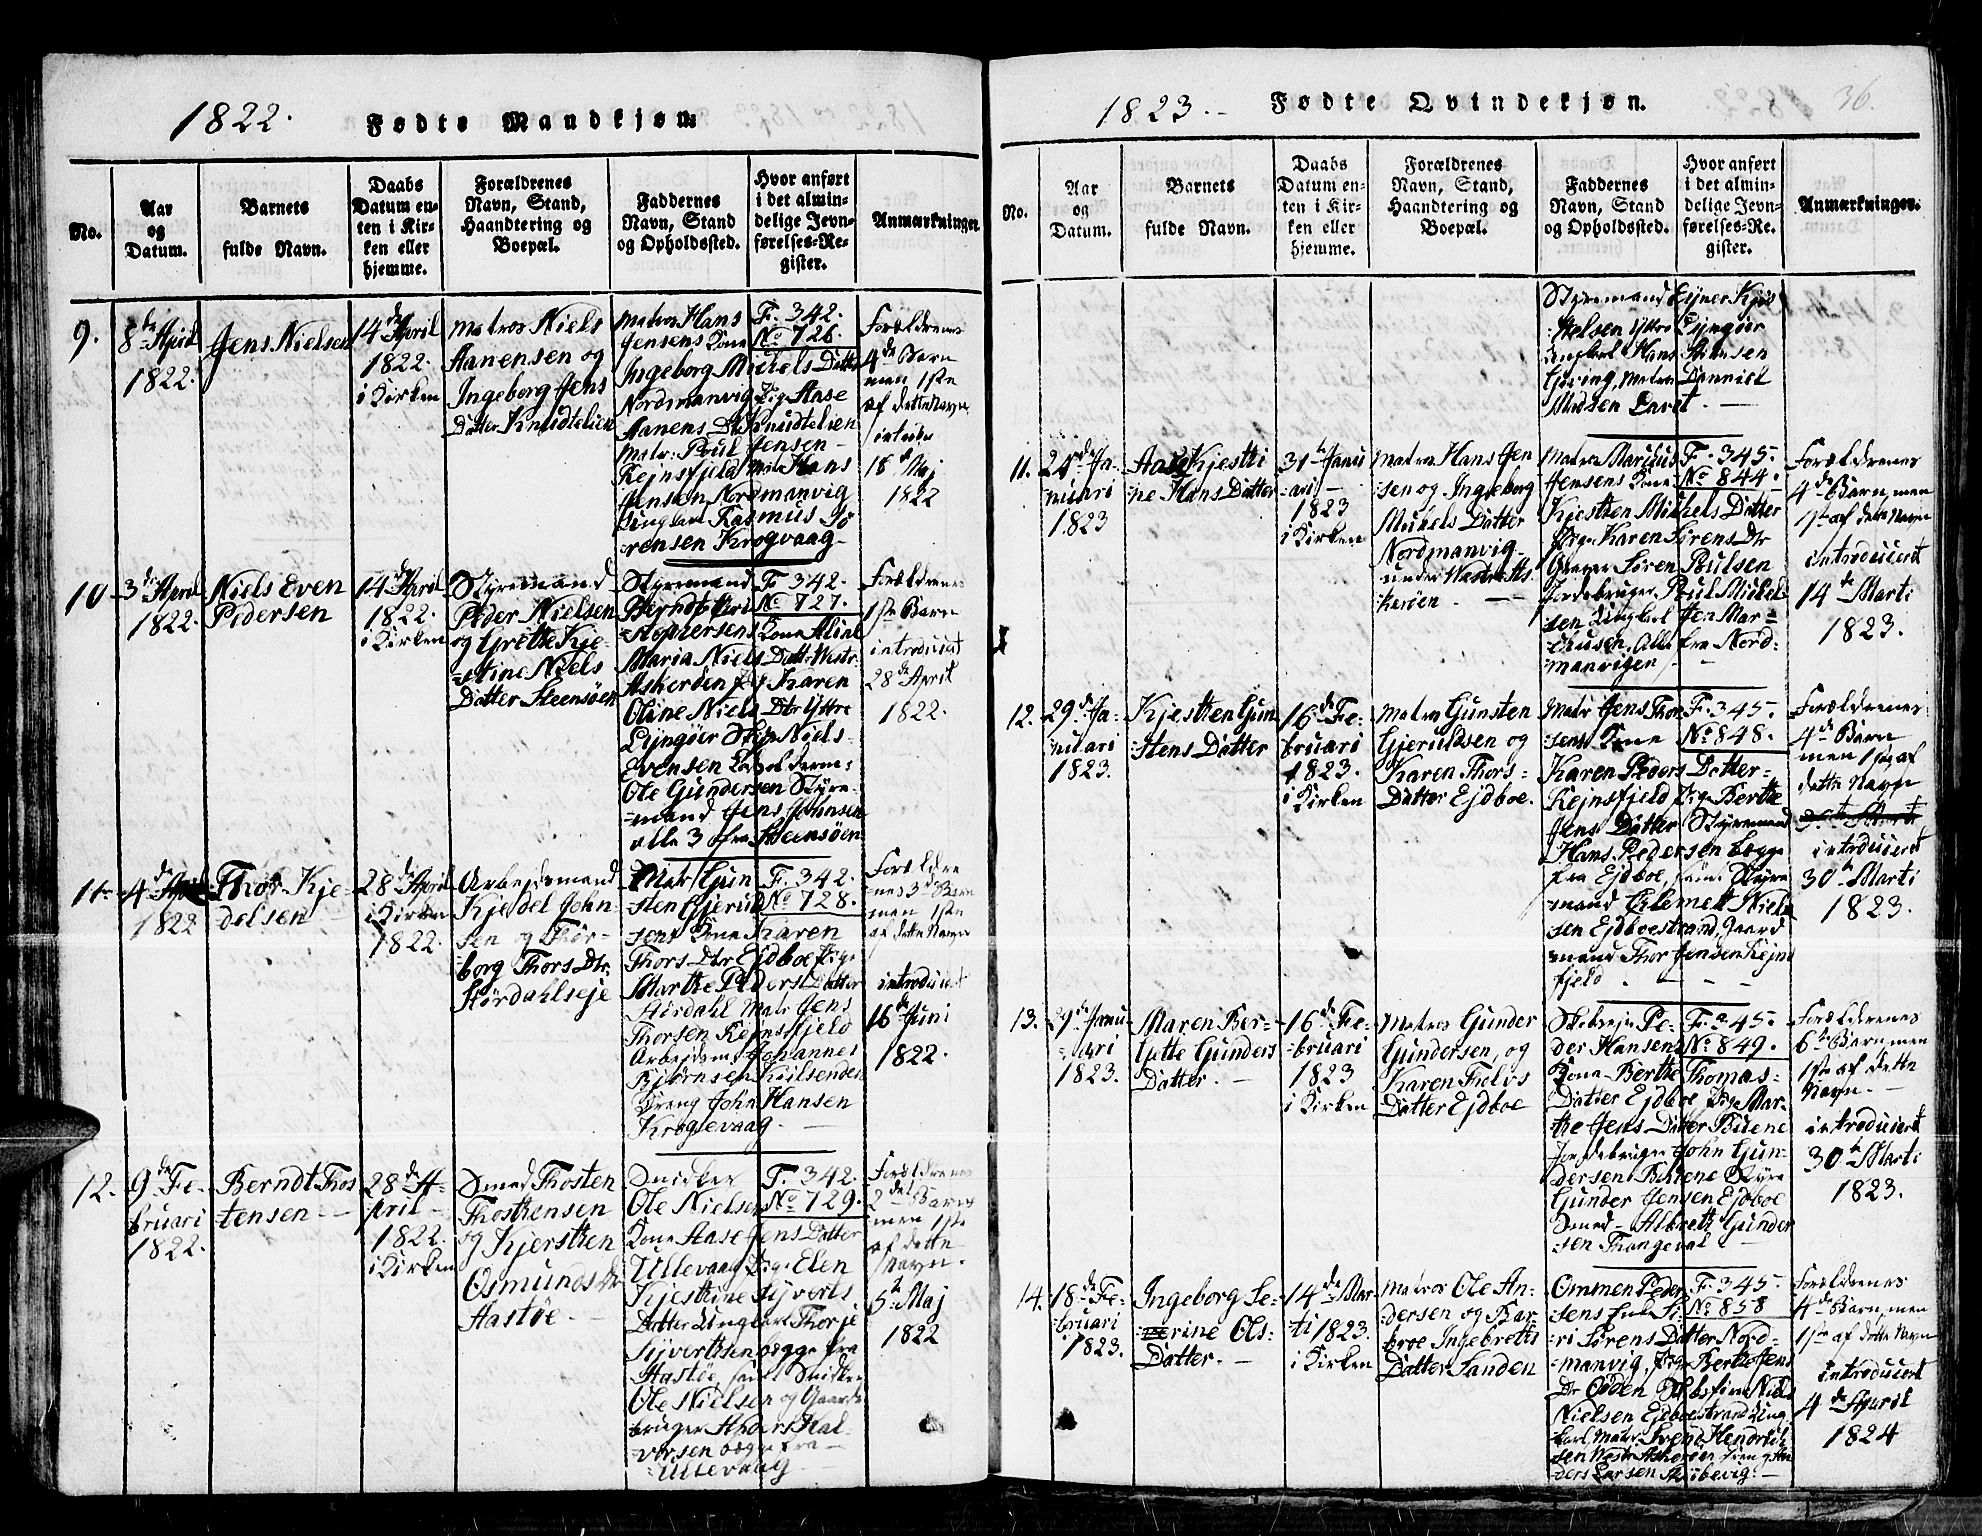 1822.
Fødte Mandkjøn.
No.
Aar
og
Datum.
Barnets
fulde Navn.
Daabs
Datum en-
ten i Kir-
ken eller
hjemme.
Forældrenes
Navn, Stand,
Haandtering og
Boepæl.
Faddernes
Navn, Stand
og Opholdssted.
Hvor anført
i det almin-
delige Jevn-
førelses-Re-
gister.
Anmærkninger.
9.
8de April
1822.
Jens Nielsen
14de April
1822.
i Kirken
Matros Niels
Aanensen og
Ingeborg Jens
Datter Knudtelien
Matros Hans
Jensens Kone
Ingeborg Michels Datter
Nordmanvig Pige Aase
Aanens Dtr Knudtelien
Matr: Poul Jensen
Rejnsfjeld Matr Hans
Jensen Nordmanvig
Ungkarl Rasmus Sö
rensen Krogvaag
F. 342.
No 726.
Forældrenes
4de Barn
men 1ste
af dette Navn
18de Maj
1822
10
3de April
1822.
Niels Even
Pedersen
14de April
1822.
i Kirken
Styremand
Peder Nielsen
og Grethe Kje-
stine Niels
Datter Steensöen
Styremand
Berndt Kri
stophersens Kone Aline
Maria Niels Dattr Westr:
Askeröen Pige Karen
Oline Niels Dtr Yttre
Lyngöer Skip Niels
Evensen
Ole Gundersen Styre-
mand Jens Johnsen
alle 3 fra Steensöen
F. 342.
No 727.
Forældrenes
1ste Barn
introduceret
28de April
1822.
11
4de April
1822
Thor Kje-
delsen
28de April
i Kirken
1822.
Arbejdsmand
Kjedel John-
sen og Thor-
borg Thors Dtr.
Hördahlseje
Matr Gun
sten Gjerul
sens Kone Karen
Thors Dtr Ejdboe Pige
Marthe Peders Datter
Hördahl Matr Jens
Thorsen Rejnsfjeld
Arbejdsm: Johannes
Björnsen
Dreng John Hansen
Krogevaag
F. 342.
No 728.
Foræld​re
nes 3de Barn
men 1ste
af dette Navn
introduceret
16de Juni
1822.
12.
9de Fe-
bruari
1822.
Berndt Thos
tensen
28de A-
pril
1822.
i Kirken
Smed Thosten
Thostensen
og Kjersthen
Osmunds Dtr
Aastöe
Snidker
Ole Nielsen
Kone Aase Jens Datter
Ullevaag Pige Elen
Kjesthine Syverts
Datter Ungkarl Thorje
Syvertsen begge fra
Aastöe, samt Snidker
Ole Nielsen og Gaard
bruger Anders Hal-
vorsen begge fra
Ullevaag
F. 342.
No 729.
Forældrenes
2det Barn
men 1ste
af dette
Navn.
5te Maj
1822
1823.
Fødte Qvindekjøn.
36.
No.
Aar
og
Datum.
Barnets
fulde Navn.
Daabs
Datum en-
ten i Kir-
ken eller
hjemme.
Forældrenes
Navn, Stand,
Haandtering og
Boepæl.
Faddernes
Navn, Stand
og Opholdssted.
Hvor anført
i det almin-
delige Jevn-
førelses-Re-
gister.
Anmærkninger.
Styremand
Yttre Lyngöer
Ungkarl Hans
Matros Danniel
Madsen
11.
Ja-
nuari
1823
Aase Kjesthi
ne Hans Datter
31te Janu
ari
1823
i Kirken
Matros Hans Jen
sen og Ingeborg
Michels Datter
Nordmanvig
under Westre As
keröen.
Matros Marchus
Jensens Kone
Kjesthen Michels Datter
Pige Karen Sörens Dtr
Sören Poulsen
Jordebruger Poul Michel
sen Ungkarl Jen Mar-
chusen, Alle fra Nord-
manvigen
F. 345.
No 844.
Forældrenes
4de Barn, men
1ste af dette Navn
introduceret
14de Marti
1823.
12.
29de Ja-
nuari
1823.
Kjesthen Gun
stens Datter
16de Fe-
bruari
1823.
i Kirken
Matros Gunsten
Gjeruldsen og
Karen Thors-
Datter Ejdboe.
Matr Jens Thor
sens Kone
Karen Peders Datter
Rejnsfjeld Pige Berthe
Jens Datter Styremand
Hans Pedersen begge
fra Ejdboe, samt Styre
mand Clemet Niels
sen Ejdboestrand, Gaard
mand Thor Jensen Rejns
fjeld
F. 345.
No 848.
Forældrenes
4de Barn
men 1ste af
dette Navn
introduceret
30te Marti
1823.
13.
29de Janu
ari
1823.
Maren Ber-
gitte Gunders
Datter.
16de Fe-
bruari
1823
i Kirken
Matros Gunder
Gundersen, og
Karen
Datter Ejdboe
Pe-
der Hansens
Kone Berthe Thomas-
Datter Ejdboe Pige Mar-
the Jens Datter
Jordebruger John Gun-
dersen Styre
Gunder Jensen Ejdboe
Smed Albreth Gunder
sen Thangeval
F. 345.
No 849.
Forældrenes
6te Barn, men
1ste af dette
Navn.
introduceret
30te Marti
1823.
14.
18de Fe-
bruari
1823.
Ingeborg Se-
rine Ols-
Datter.
14de Mar
ti 1823.
i Kirken
Matros Ole An-
dersen og Bar-
broe Ingebreths
Datter Sanden
Ommen Peder
sens Enke Si-
ri Sörens Datter Nord-
manvig, Pige Berthe Jens
Dr
Nielsen Ejdboestrand Ung
karl, Matr Svend Hendrich
sen Westr Askeröen
ders Larsen
F. 345.
No 858
Forældrenes
4de Barn, men
1ste af dette Navn
introduceret
4de April
1824